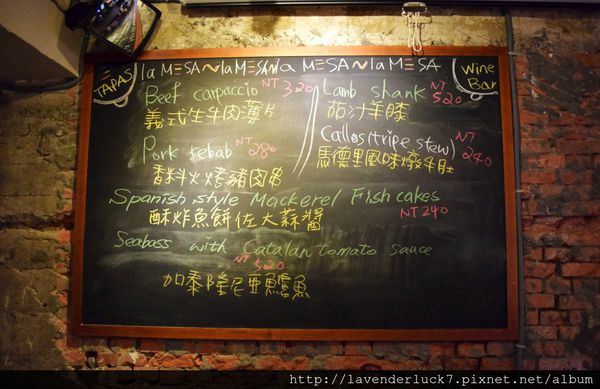 TAPAS
la MESA la MESA la MESA la MESA
Wine Bar
Beef carpaccio NT 320
義式生牛肉薄片
Pork kebab NT 280
香料火烤豬肉串
Lamb shank NT 520
茄汁羊膝
Callos (tripe stew) NT 240
馬德里風味燉牛肚
Spanish style Mackerel Fish cakes
酥炸魚餅佐大蒜醬 NT 240
Seabass with Catalan tomato sauce
NT 520
加泰隆尼亞鱸魚
http://lavenderluck7.pixnet.net/album